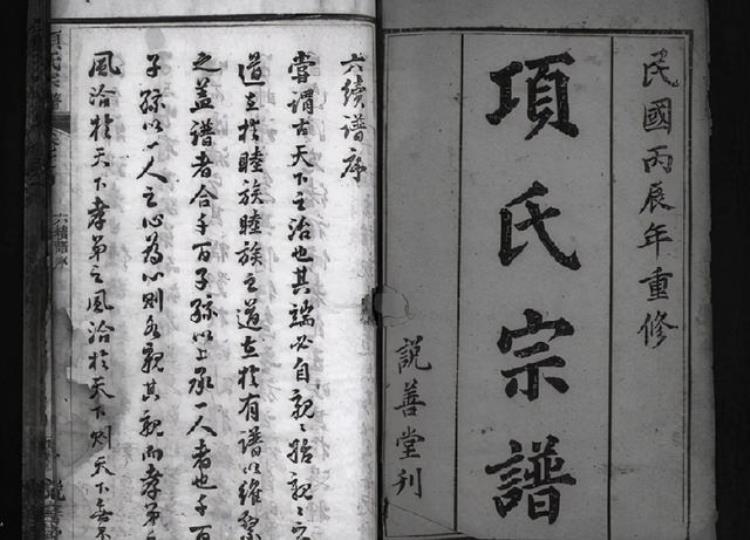 民國丙辰年重修
項氏宗譜
說善堂刊
六續譜序
嘗謂古天下之治也其端必自親〻始親〻之
道在於睦族睦族之道在於有譜以維繫
之蓋譜者合千百子孫以上承一人者也千百
子孫以一人之心為心則各親其親而孝弟之
風洽於天下孝弟之風洽於天下則天下
項氏宗譜
六續譜序